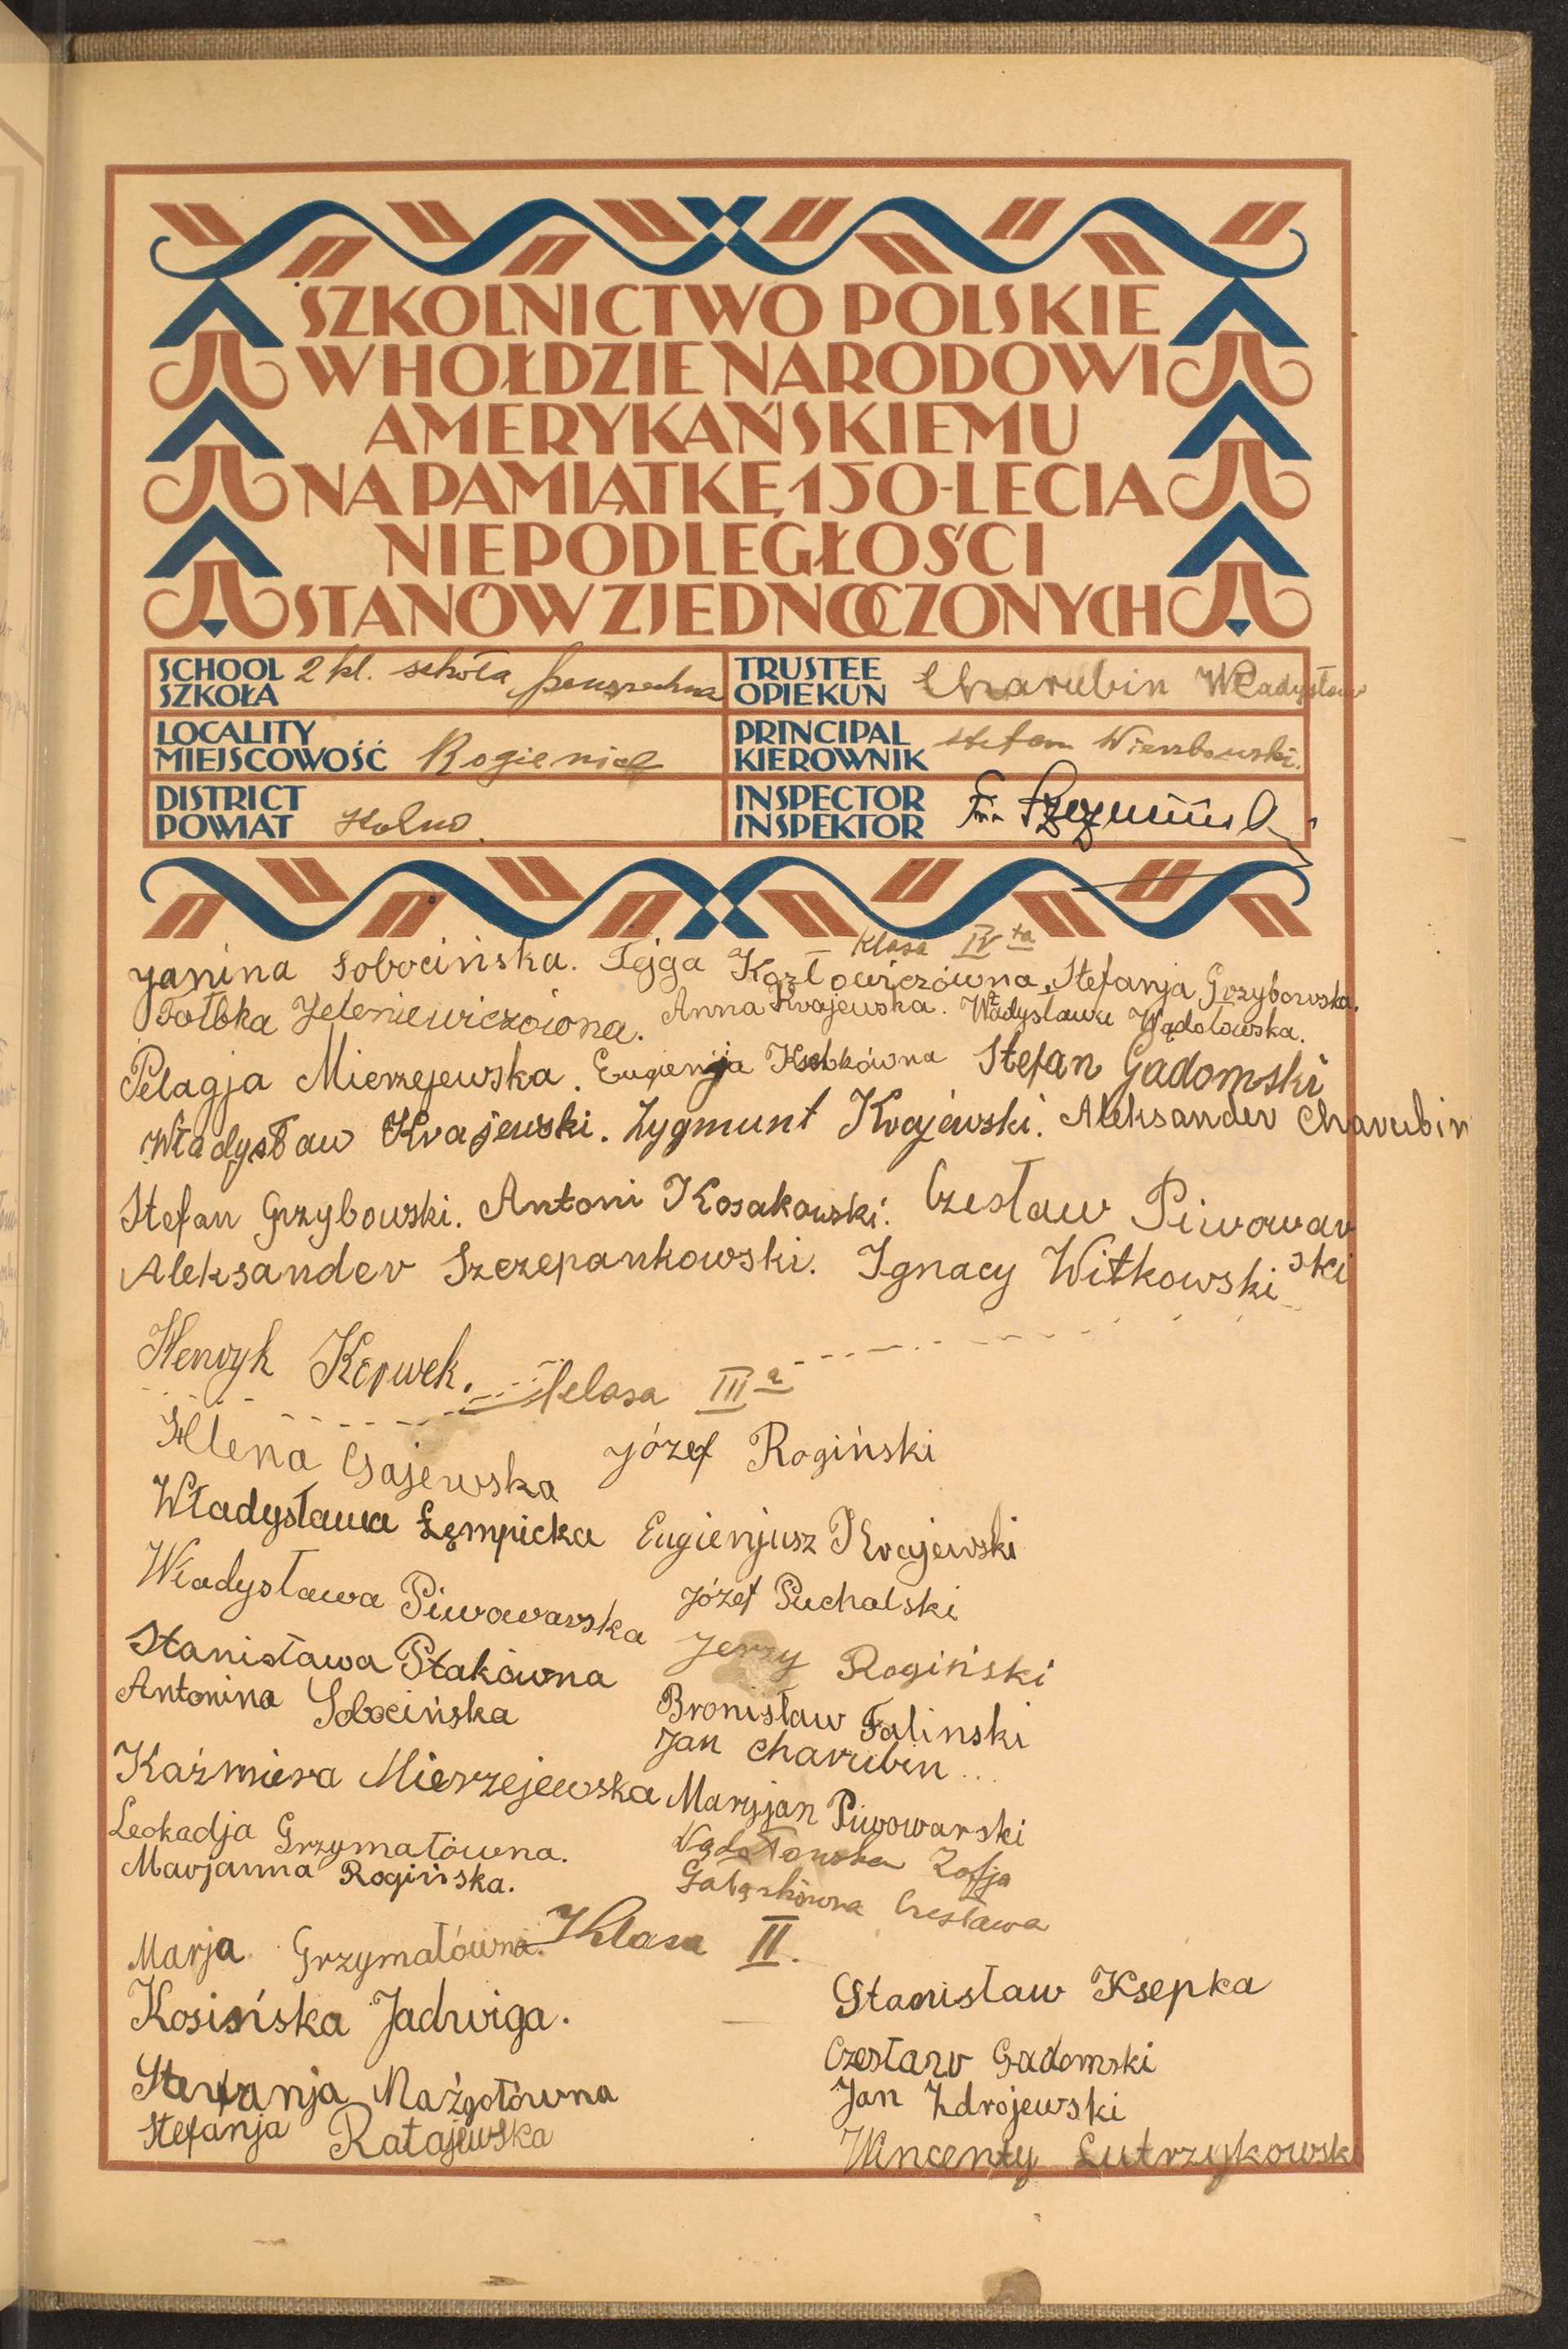 SZKOLNICTWO POLSKIE
W HOŁDZIE NARODOWI
AMERYKAŃSKIEMU
NA PAMIĄTKĘ 150-LECIA
NIEPODLEGŁOŚCI
STANÓW ZJEDNOCZONYCH
SCHOOL SZKOŁA 2 kl. szkoła powszechna
TRUSTEE OPIEKUN Charubin Władysław
LOCALITY MIEJSCOWOŚĆ Rogienice
PRINCIPAL KIEROWNIK Stefan Wierzbowski.
DISTRICT POWIAT Kolno.
INSPECTOR INSPEKTOR Fr.
Klasa IV ta
Janina Sobocińska. Fejga Kozłowiczówna. Stefanja Grzybowska.
Fołbka Zeleniewiczówna. Anna Krajewska. Władysława Wądołowska.
Pelagja Mierzejewska. Eugienja Stefan Gadomski
Władysław Krajewski. Zygmunt Krajewski. Aleksander Charubin
Stefan Grzybowski. Antoni Kosakowski. Czesław Piwowar
ski
Aleksander Szczepankowski. Ignacy Witkowski
Henryk
klasa III a
Helena Gajewska
Władysława Łempicka
Władysława Piwowarska
Stanisława Ptakówna
Antonina Sobocińska
Kaźmiera Mierzejewska
Leokadja Grzymałówna.
Marjanna Rogińska.
Józef Rogiński
Eugienjusz Krajewski
Józef Puchalski
Jerzy Rogiński
Bronisław Falinski
Jan Charubin
Maryjan Piwowarski
Wądołowska Zofja
Gałązkówna Czesława
Klasa II.
Marja Grzymałówna.
Kosińska Jadwiga.
Stefanja Maźgołówna
Stefanja Ratajewska
Stanisław Ksepka
Czesław Gadomski
Jan Zdrojewski
Wincenty Lutrzykowski